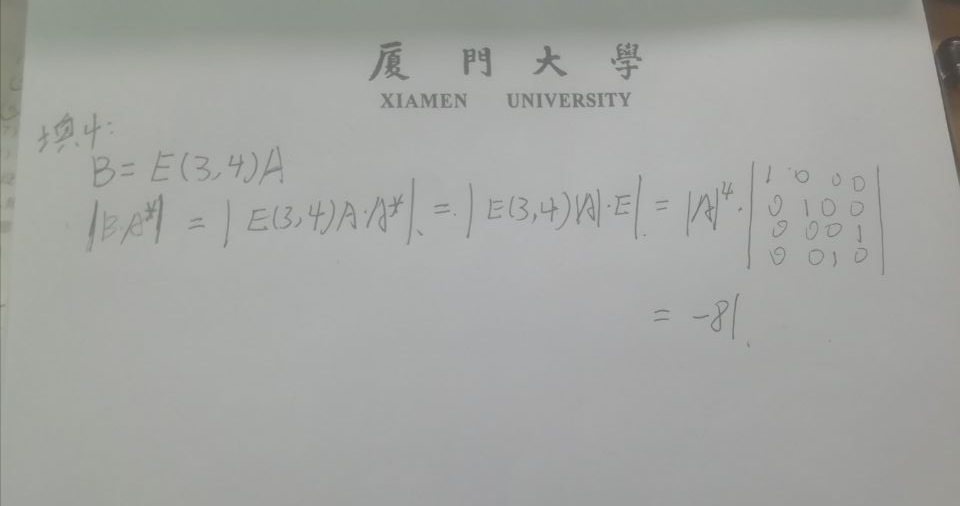 厦門大學
XIAMEN UNIVERSITY
填4:
B = E(3,4)A
|B·A*| = |E(3,4)A·A*| = |E(3,4)|A|·E| = |A|⁴· |1 0 0 0
0 1 0 0
0 0 0 1
0 0 1 0|
= -81.